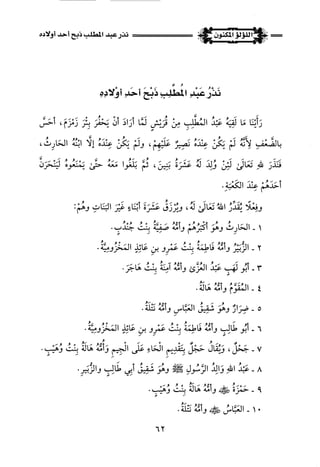 اللؤلؤ المكنون
نذر عبد المطلب ذبح أحد أولاده
نَذْرُ عَبْدِ الْمُطَّلِبِ ذَبْحَ أَحَدِ أَوْلَادِهِ
رَأَيْنَا مَا لَقِيَهُ عَبْدُ الْمُطَّلِبِ مِنْ قُرَيْشٍ لَمَّا أَرَادَ أَنْ يَحْفِرَ بِئْرَ زَمْزَمَ، أَحَسَّ
بِالضَّعْفِ لِأَنَّهُ لَمْ يَكُنْ عِنْدَهُ نَصِيرٌ عَلَيْهِمْ، وَلَمْ يَكُنْ عِنْدَهُ إِلَّا ابْنُهُ الْحَارِثُ،
فَنَذَرَ لله تَعَالَى لَئِنْ وُلِدَ لَهُ عَشَرَةُ بَنِينَ، ثُمَّ بَلَغُوا مَعَهُ حَتَّى يَمْنَعُوهُ لَيَنْحَرَنَّ
أَحَدَهُمْ عِنْدَ الْكَعْبَةِ.
وَفِعْلًا يُقَدِّرُ اللهُ تَعَالَى لَهُ، وَيُرْزَقُ عَشَرَةَ أَبْنَاءٍ غَيْرَ الْبَنَاتِ وَهُمْ:
١ - الْحَارِثُ وَهُوَ أَكْبَرُهُمْ وَأُمُّهُ صَفِيَّةُ بِنْتُ جُنْدُبٍ.
٢ - الزُّبَيْرُ وَأُمُّهُ فَاطِمَةُ بِنْتُ عَمْرِو بْنِ عَائِذٍ الْمَخْزُومِيَّةُ.
٣ - أَبُو لَهَبٍ عَبْدُ الْعُزَّى وَأُمُّهُ آمِنَةُ بِنْتُ هَاجَرَ.
٤ - الْمُقَوَّمُ وَأُمُّهُ هَالَةُ.
٥ - ضِرَارٌ وَهُوَ شَقِيقُ الْعَبَّاسِ وَأُمُّهُ نَتْلَةُ.
٦ - أَبُو طَالِبٍ وَأُمُّهُ فَاطِمَةُ بِنْتُ عَمْرِو بْنِ عَائِذٍ الْمَخْزُومِيَّةُ.
٧ - حَجْلٌ، وَيُقَالُ جَحْلٌ بِتَقْدِيمِ الْحَاءِ عَلَى الْجِيمِ وَأُمُّهُ هَالَةُ بِنْتُ وُهَيْبٍ.
٨ - عَبْدُ اللهِ وَالِدُ الرَّسُولِ ﷺ وَهُوَ شَقِيقُ أَبِي طَالِبٍ وَالزُّبَيْرِ.
٩ - حَمْزَةُ ﷺ وَأُمُّهُ هَالَةُ بِنْتُ وُهَيْبٍ.
١٠ - الْعَبَّاسُ ﷺ وَأُمُّهُ نَتْلَةُ.
٦٢